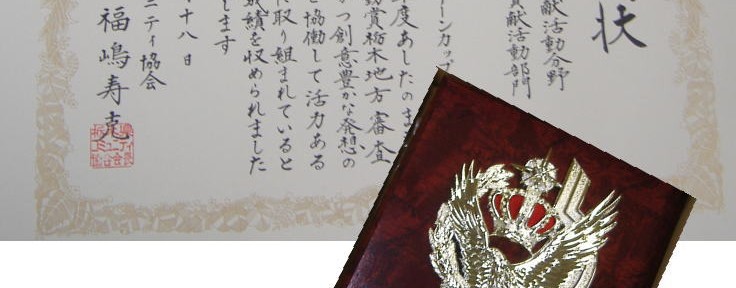 状
献活動分野
献活動部門
ーンカップ
度あしたのま
賞栃木地方審査
つ創意豊かな発想の
協働して活力ある
取り組まれていると
成績を収められました
します
十八日
ニティ協会
福嶋寿克